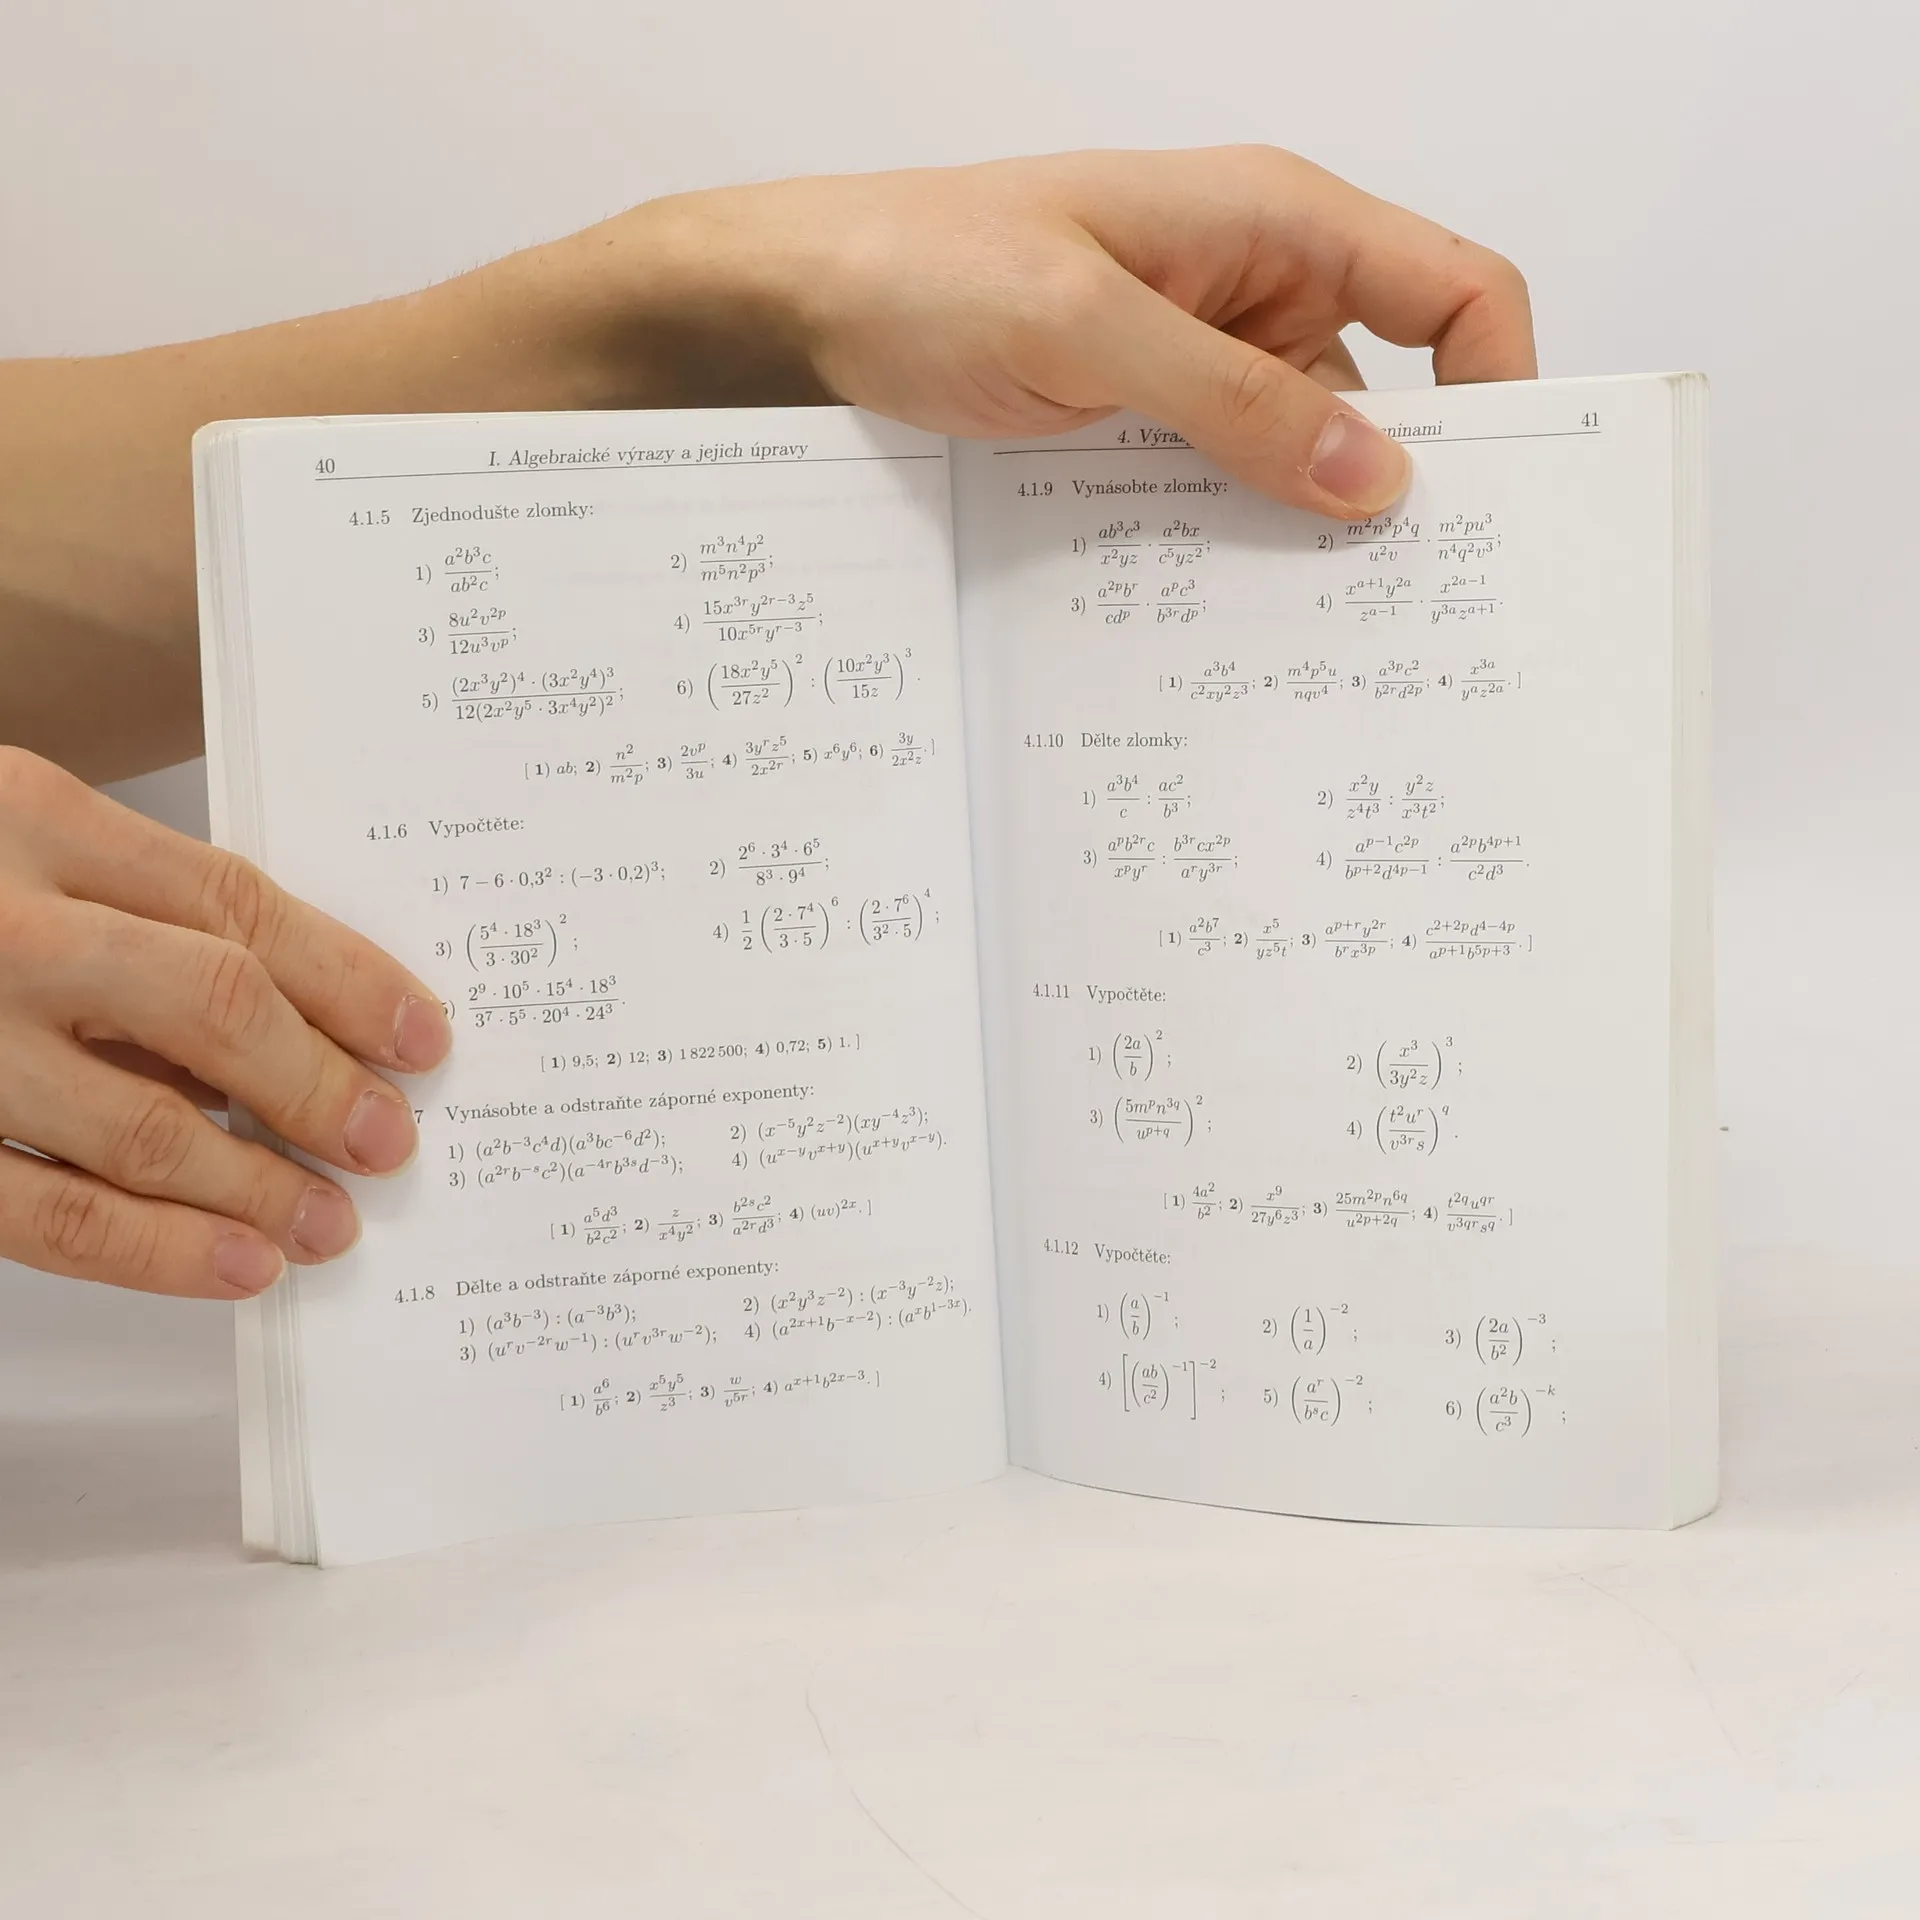 40 I. Algebraické výrazy a jejich úpravy
4.1.5 Zjednodušte zlomky:
1) \frac{a^2b^3c}{ab^2c}; 2) \frac{m^3n^4p^2}{m^5n^2p^3};
3) \frac{8u^2v^{2p}}{12u^3v^p}; 4) \frac{15x^{3r}y^{2r-3}z^5}{10x^{5r}y^{r-3}};
5) \frac{(2x^3y^2)^4 · (3x^2y^4)^3}{12(2x^2y^5 · 3x^4y^2)^2}; 6) (\frac{18x^2y^5}{27z^2})^2 : (\frac{10x^2y^3}{15z})^3.
[ 1) ab; 2) \frac{n^2}{m^2p}; 3) \frac{2v^p}{3u}; 4) \frac{3y^rz^5}{2x^{2r}}; 5) x^6y^6; 6) \frac{3y}{2x^2z}. ]
4.1.6 Vypočtěte:
1) 7 − 6 · 0,3^2 : (−3 · 0,2)^3; 2) \frac{2^6 · 3^4 · 6^5}{8^3 · 9^4};
3) (\frac{5^4 · 18^3}{3 · 30^2})^2; 4) \frac{1}{2} (\frac{2 · 7^4}{3 · 5})^6 : (\frac{2 · 7^6}{3^2 · 5})^4;
5) \frac{2^9 · 10^5 · 15^4 · 18^3}{3^7 · 5^5 · 20^4 · 24^3}.
[ 1) 9,5; 2) 12; 3) 1 822 500; 4) 0,72; 5) 1. ]
7 Vynásobte a odstraňte záporné exponenty:
1) (a^2b^{-3}c^4d)(a^3bc^{-6}d^2); 2) (x^{-5}y^2z^{-2})(xy^{-4}z^3);
3) (a^{2r}b^{-s}c^2)(a^{-4r}b^{3s}d^{-3}); 4) (u^{x-y}v^{x+y})(u^{x+y}v^{x-y}).
[ 1) \frac{a^5d^3}{b^2c^2}; 2) \frac{z}{x^4y^2}; 3) \frac{b^{2s}c^2}{a^{2r}d^3}; 4) (uv)^{2x}. ]
4.1.8 Dělte a odstraňte záporné exponenty:
1) (a^3b^{-3}) : (a^{-3}b^3); 2) (x^2y^3z^{-2}) : (x^{-3}y^{-2}z);
3) (u^rv^{-2r}w^{-1}) : (u^rv^{3r}w^{-2}); 4) (a^{2x+1}b^{-x-2}) : (a^xb^{1-3x}).
[ 1) \frac{a^6}{b^6}; 2) \frac{x^5y^5}{z^3}; 3) \frac{w}{v^{5r}}; 4) a^{x+1}b^{2x-3}. ]
4. 41
4.1.9 Vynásobte zlomky:
1) \frac{ab^3c^3}{x^2yz} · \frac{a^2bx}{c^5yz^2}; 2) \frac{m^2n^3p^4q}{u^2v} · \frac{m^2pu^3}{n^4q^2v^3};
3) \frac{a^{2p}b^r}{cd^p} · \frac{a^pc^3}{b^{3r}d^p}; 4) \frac{x^{a+1}y^{2a}}{z^{a-1}} · \frac{x^{2a-1}}{y^{3a}z^{a+1}}.
[ 1) \frac{a^3b^4}{c^2xy^2z^3}; 2) \frac{m^4p^5u}{nqv^4}; 3) \frac{a^{3p}c^2}{b^{2r}d^{2p}}; 4) \frac{x^{3a}}{y^az^{2a}}. ]
4.1.10 Dělte zlomky:
1) \frac{a^3b^4}{c} : \frac{ac^2}{b^3}; 2) \frac{x^2y}{z^4t^3} : \frac{y^2z}{x^3t^2};
3) \frac{a^pb^{2r}c}{x^py^r} : \frac{b^{3r}cx^{2p}}{a^ry^{3r}}; 4) \frac{a^{p-1}c^{2p}}{b^{p+2}d^{4p-1}} : \frac{a^{2p}b^{4p+1}}{c^2d^3}.
[ 1) \frac{a^2b^7}{c^3}; 2) \frac{x^5}{yz^5t}; 3) \frac{a^{p+r}y^{2r}}{b^rx^{3p}}; 4) \frac{c^{2+2p}d^{4-4p}}{a^{p+1}b^{5p+3}}. ]
4.1.11 Vypočtěte:
1) (\frac{2a}{b})^2; 2) (\frac{x^3}{3y^2z})^3;
3) (\frac{5m^pn^{3q}}{u^{p+q}})^2; 4) (\frac{t^2u^r}{v^{3r}s})^q.
[ 1) \frac{4a^2}{b^2}; 2) \frac{x^9}{27y^6z^3}; 3) \frac{25m^{2p}n^{6q}}{u^{2p+2q}}; 4) \frac{t^{2q}u^{qr}}{v^{3qr}s^q}. ]
4.1.12 Vypočtěte:
1) (\frac{a}{b})^{-1}; 2) (\frac{1}{a})^{-2}; 3) (\frac{2a}{b^2})^{-3};
4) [(\frac{ab}{c^2})^{-1}]^{-2}; 5) (\frac{a^r}{b^sc})^{-2}; 6) (\frac{a^2b}{c^3})^{-k};